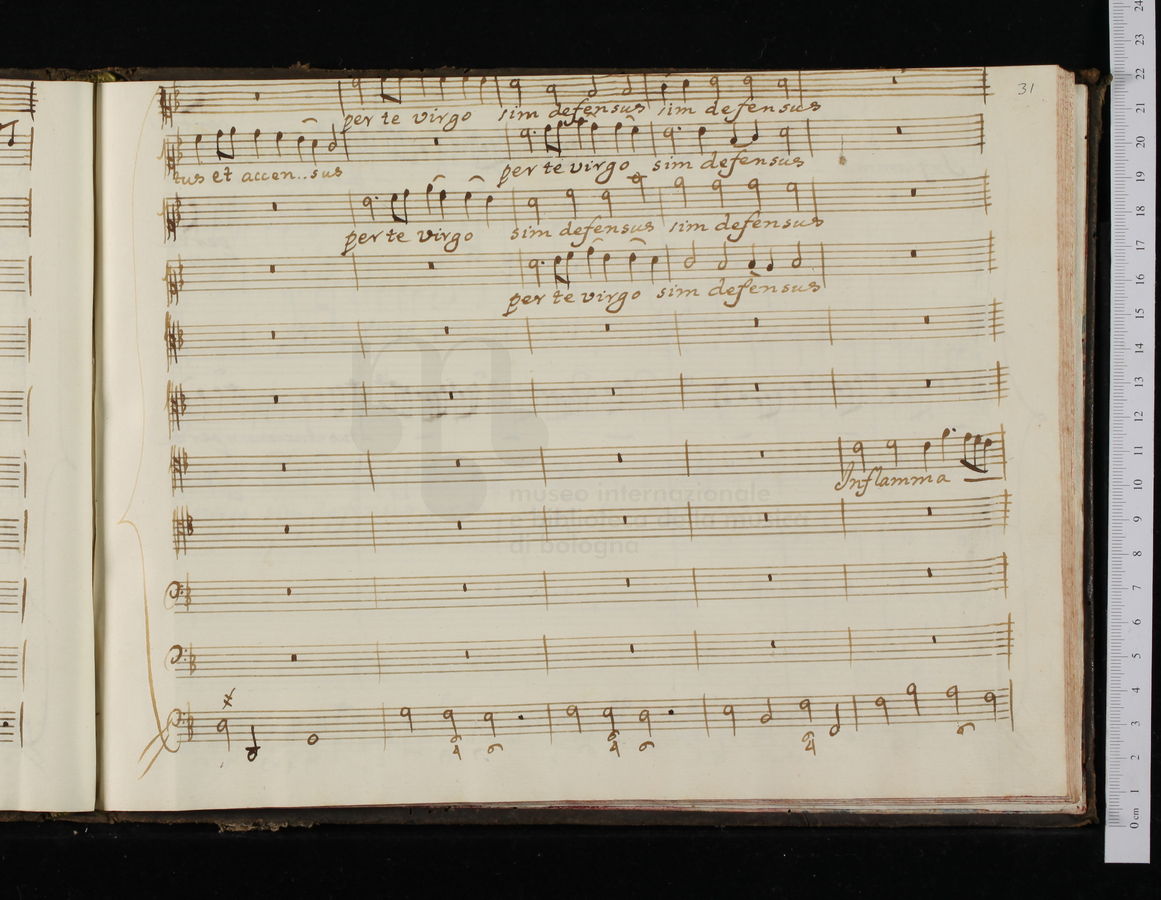 31
per te virgo sim defensus sim defensus
tus et accen..sus per te virgo sim defensus
per te virgo sim defensus sim defensus
per te virgo sim defensus
Inflamma
museo internazionale
e biblioteca della musica
di bologna
0 cm 1 2 3 4 5 6 7 8 9 10 11 12 13 14 15 16 17 18 19 20 21 22 23 24